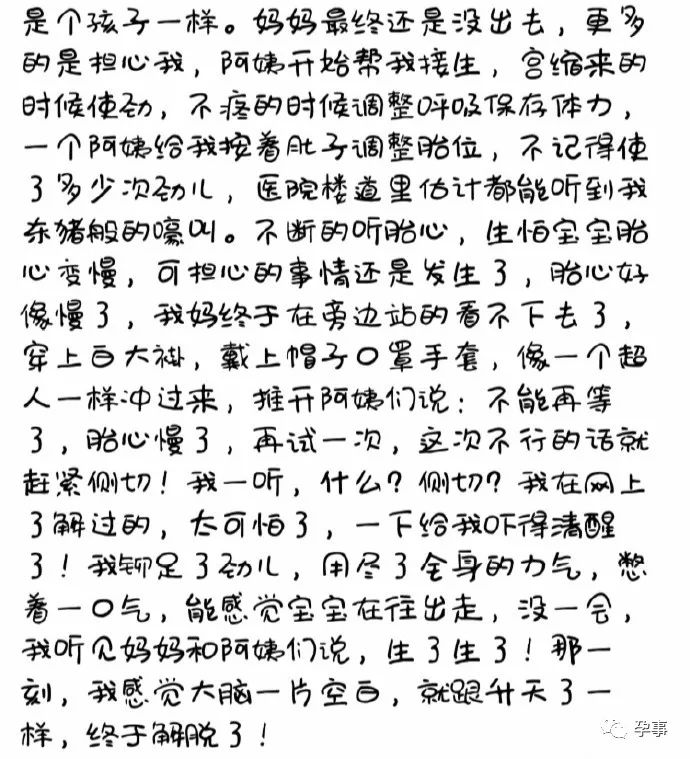 是个孩子一样。妈妈最终还是没出去，更多
的是担心我，阿姨开始帮我接生，宫缩来的
时候使劲，不疼的时候调整呼吸保存体力，
一个阿姨给我按着肚子调整胎位，不记得使
了多少次劲儿，医院楼道里估计都能听到我
杀猪般的嚎叫。不断的听胎心，生怕宝宝胎
心变慢，可担心的事情还是发生了，胎心好
像慢了，我妈终于在旁边站的看不下去了，
穿上白大褂，戴上帽子口罩手套，像一个超
人一样冲过来，推开阿姨们说：不能再等
了，胎心慢了，再试一次，这次不行的话就
赶紧侧切！我一听，什么？侧切？我在网上
了解过的，太可怕了，一下给我吓得清醒
了！我铆足了劲儿，用尽了全身的力气，憋
着一口气，能感觉宝宝在往出走，没一会，
我听见妈妈和阿姨们说，生了生了！那一
刻，我感觉大脑一片空白，就跟升天了一
样，终于解脱了！
孕事